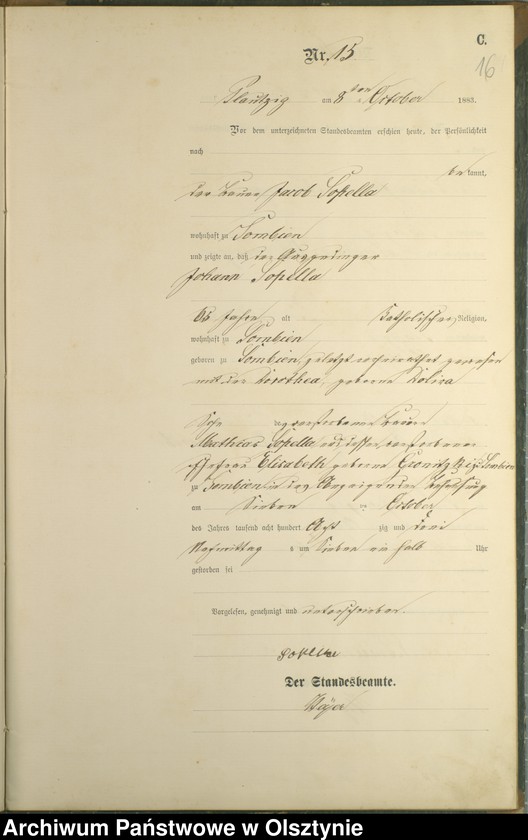 C.
16
Nr. 15
Plautzig am 8ten October 1883.
Vor dem unterzeichneten Standesbeamten erschien heute, der Persönlichkeit
nach
be kannt,
der Bauer Jacob Sopella
wohnhaft zu Sombien
und zeigte an, daß der
Johann Sopella
Jahre alt Katholischer Religion,
wohnhaft zu Sombien
geboren zu Sombien, zuletzt verheirathet gewesen
mit der Dorothea, geborne Kolira
Sohn des verstorbenen Bauer
Mathias Sopella und dessen verstorbener
Ehefrau Elisabeth geborne
zu Sombien in des Anzeigenden Behausung
am Sieben ten October
des Jahres tausend acht hundert Acht zig und drei
Nachmittag s um Sieben ein halb Uhr
gestorben sei
Vorgelesen, genehmigt und unterschrieben.
Sopella
Der Standesbeamte.
Archiwum Państwowe w Olsztynie